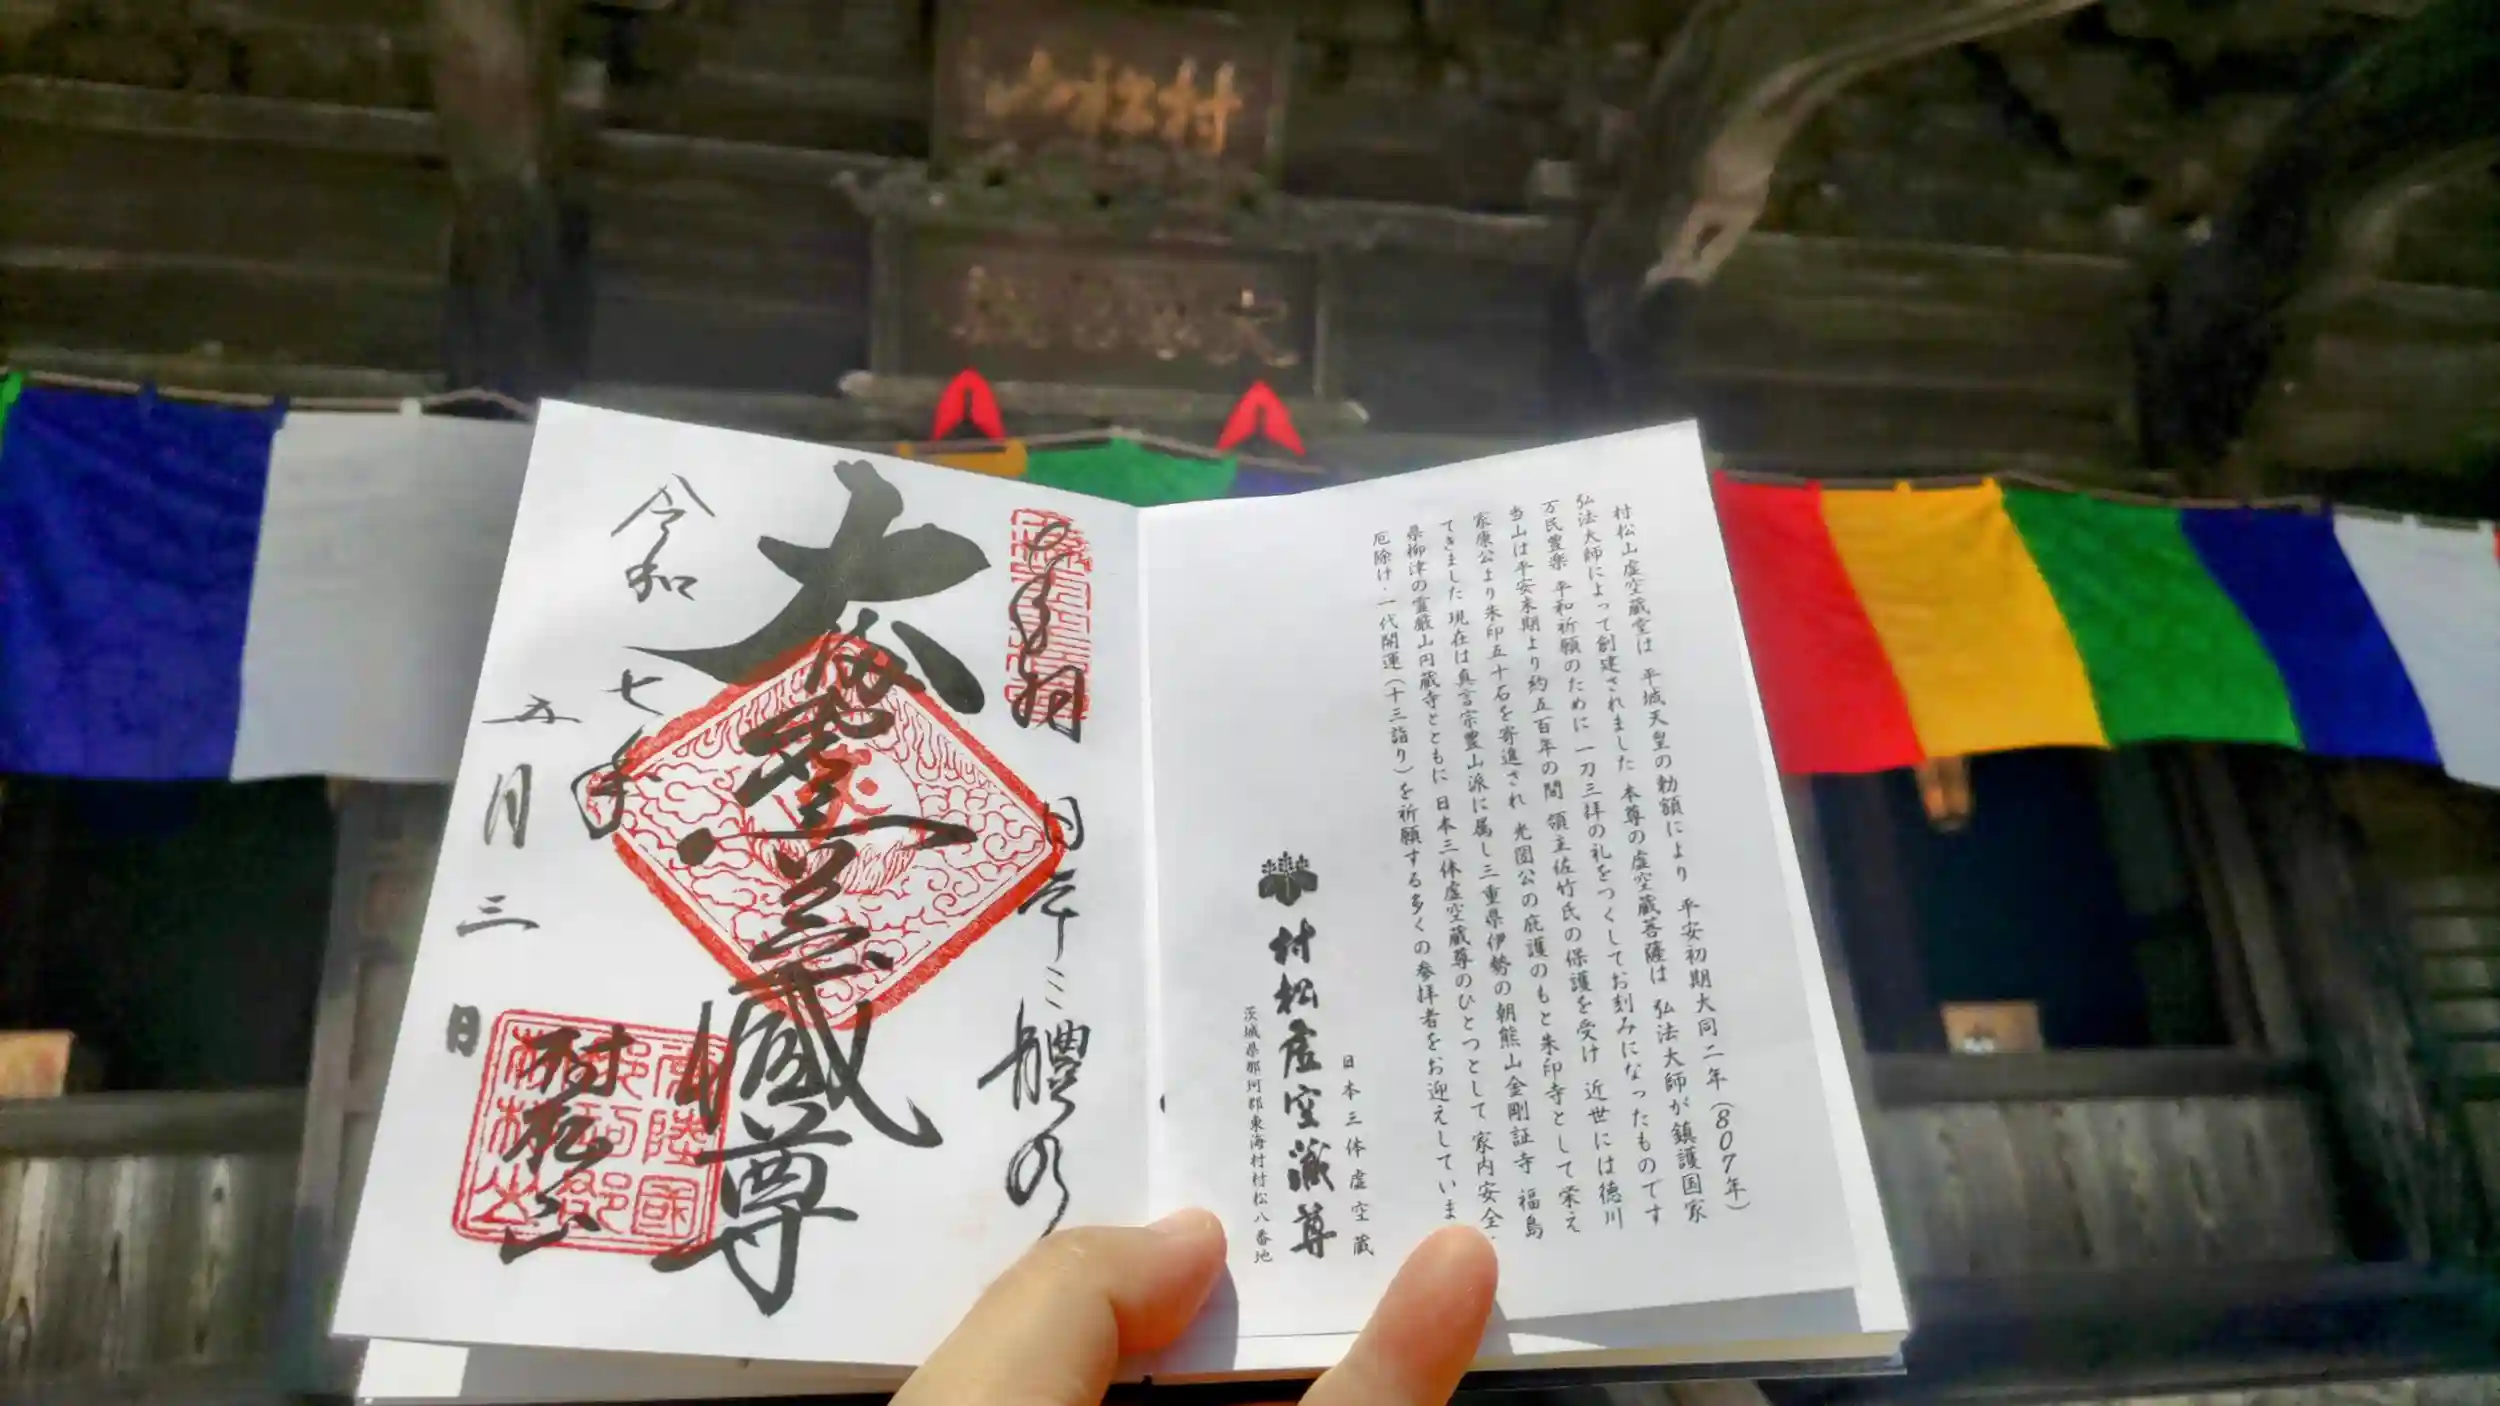 村松山
大
村松山虚空蔵堂は 平城天皇の勅額により 平安初期大同二年(807年)
弘法大師によって創建されました 本尊の虚空蔵菩薩は 弘法大師が鎮護国家
万民豊楽 平和祈願のために 一刀三拝の礼をつくしてお刻みになったものです
当山は平安末期より約五百年の間 領主佐竹氏の保護を受け 近世には徳川
家康公より朱印五十石を寄進され 光圀公の庇護のもと朱印寺として栄え
てきました 現在は真言宗豊山派に属し 三重県伊勢の朝熊山金剛証寺 福島
県柳津の霊厳山円蔵寺とともに 日本三体虚空蔵尊のひとつとして 家内安全・
厄除け・一代開運(十三詣り)を祈願する多くの参拝者をお迎えしていま
日本三体虚空蔵
村松虚空蔵尊
茨城県那珂郡東海村村松八番地
奉拝
日本三體の
大満虚空蔵尊
令和七年
五月三日
村松山
常陸國
那珂郡
村松山